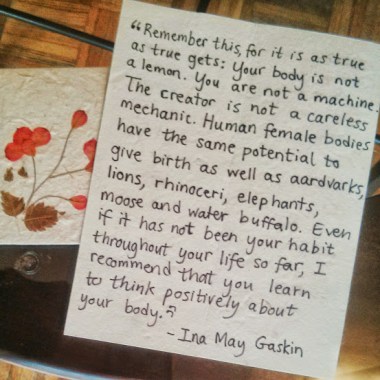 “Remember this, for it is as true
as true gets: Your body is not
a lemon. You are not a machine.
The creator is not a careless
mechanic. Human female bodies
have the same potential to
give birth as well as aardvarks,
lions, rhinoceri, elephants,
moose and water buffalo. Even
if it has not been your habit
throughout your life so far, I
recommend that you learn
to think positively about
your body.”
- Ina May Gaskin